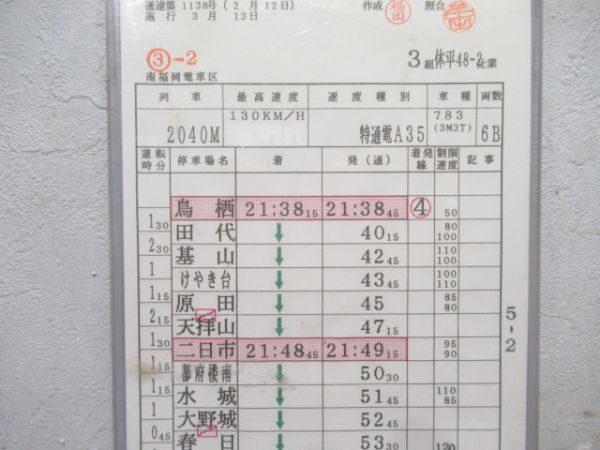 通達第 1138号 (2月12日)
施行 3月 13日
作成 福岡 照合
③-2
3組休平48-2仕業
南福岡電車区
列車 最高速度 速度種別 車種 両数
2040M 130KM/H 特通電A35 783 (3M3T) 6B
運転時分 停車場名 着 発(通) 着発線 制限速度 記事
鳥栖 21:38 15 21:38 45 ④ 50
1 30 田代 ↓ 40 15 80 100
2 30 基山 ↓ 42 45 110 100
1 けやき台 ↓ 43 45 100 110
1 15 原田 ↓ 45 85 80
2 15 天拝山 ↓ 47 15
1 30 二日市 21:48 45 21:49 15 95 90
1 15 都府楼南 ↓ 50 30
1 15 水城 ↓ 51 45 110 85
1 大野城 ↓ 52 45
0 45 春日 ↓ 53 30 120
5-2